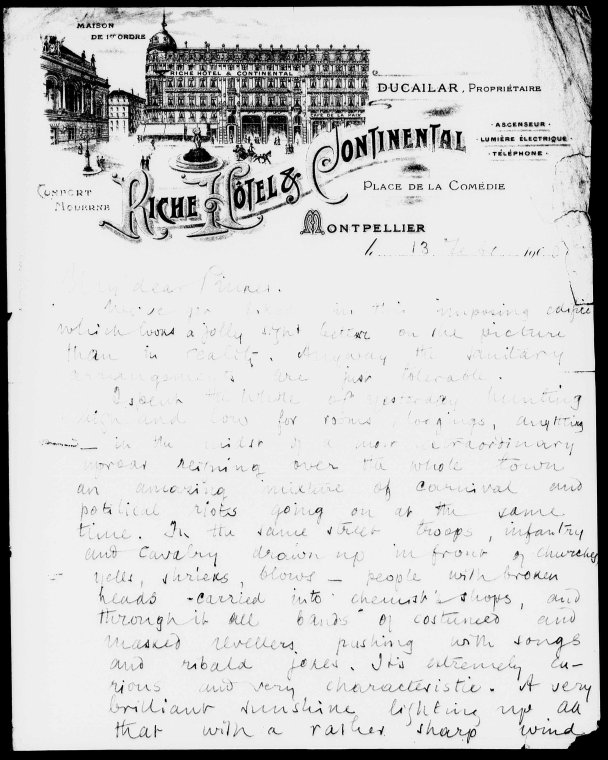 MAISON
DE 1er ORDRE
RICHE HÔTEL & CONTINENTAL
DUCAILAR, PROPRIÉTAIRE
· ASCENSEUR ·
· LUMIÈRE ÉLECTRIQUE ·
· TÉLÉPHONE ·
CONFORT
MODERNE
RICHE HÔTEL & CONTINENTAL
PLACE DE LA COMÉDIE
MONTPELLIER
13 190
My dear Pinker.
We've got fixed in this imposing edifice
which looks a jolly sight better on the picture
than in reality. Anyway the sanitary
arrangements are just tolerable.
I spent the whole of yesterday hunting
high and low for rooms, lodgings, anything
— in the midst of a most extraordinary
uproar reigning over the whole town
an amazing mixture of carnival and
political riots going on at the same
time. In the same street troops, infantry
and cavalry drawn up in front of churches,
yells, shrieks, blows — people with broken
heads carried into chemist's shops, and
through it all bands of costumed and
masked revellers pushing with songs
and ribald jokes. It's extremely cu-
rious and very characteristic. A very
brilliant sunshine lighting up all
that with a rather sharp wind